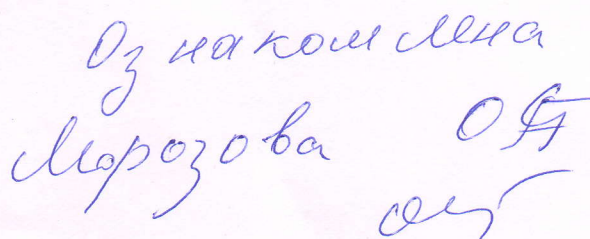 Ознакомлена
Морозова